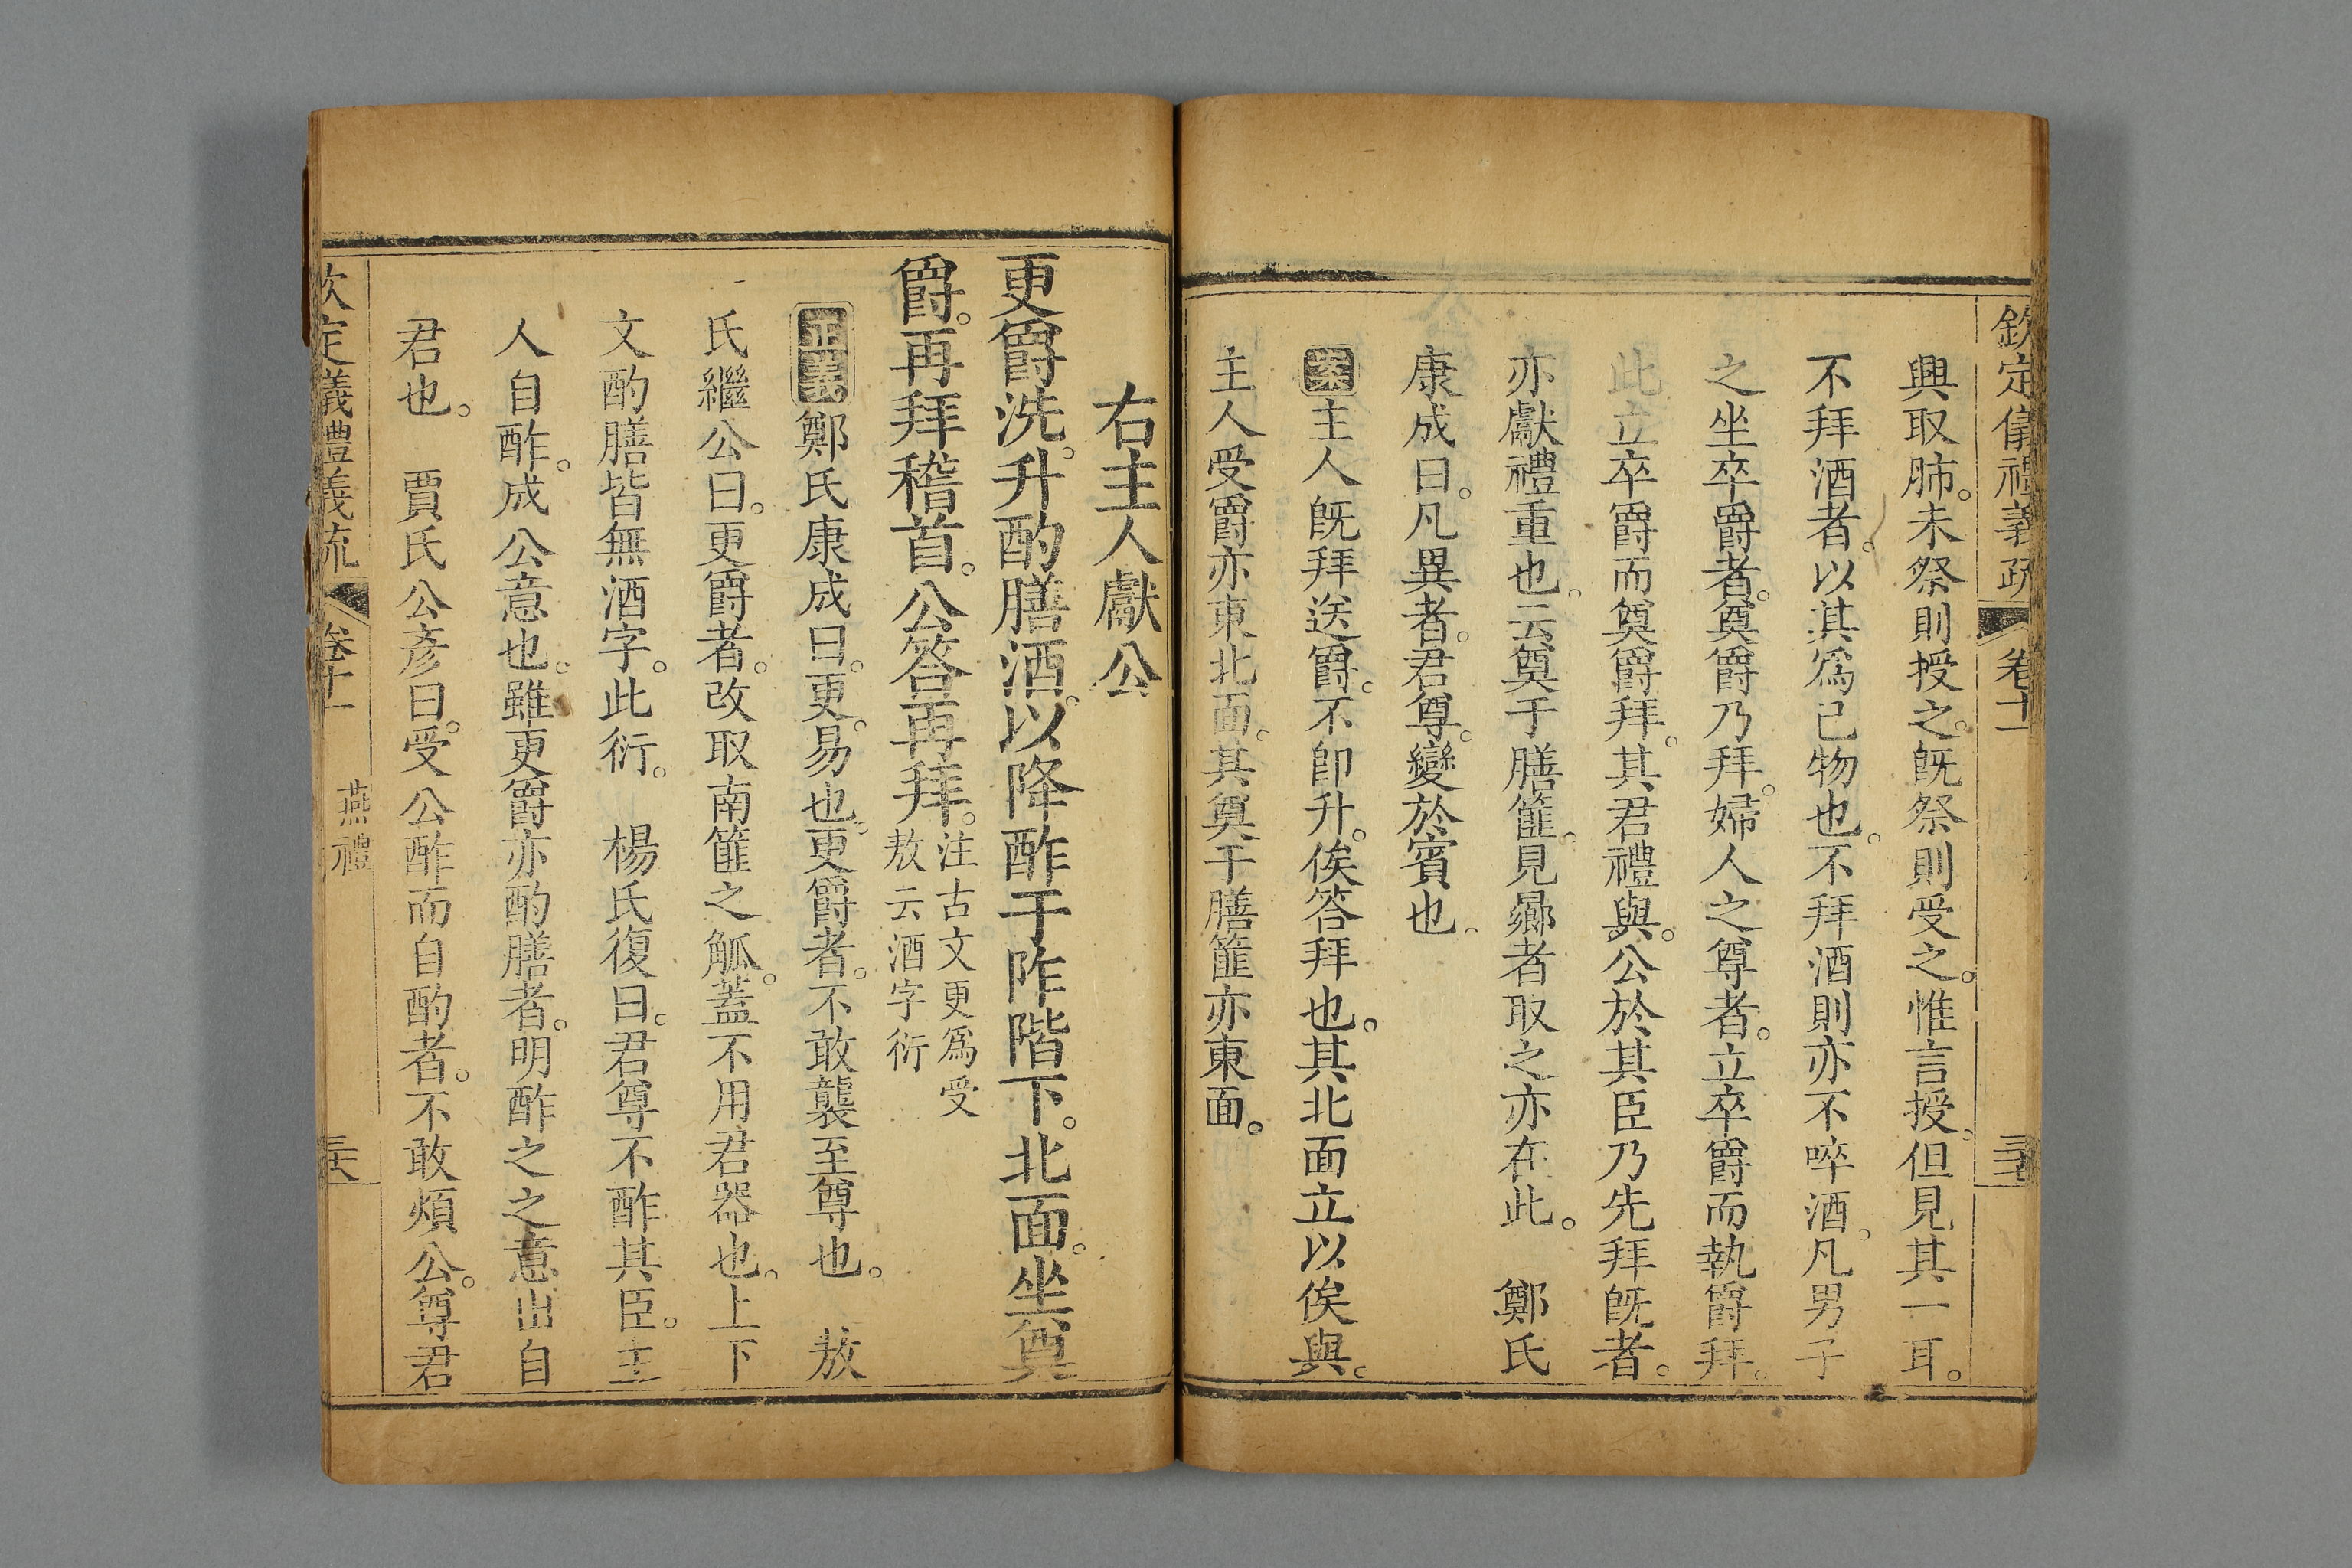 欽定儀禮義疏 卷十一
興取肺。未祭則授之。旣祭則受之。惟言授。但見其一耳。
不拜酒者。以其爲己物也。不拜酒則亦不啐酒。凡男子
之坐卒爵者。奠爵乃拜。婦人之尊者。立卒爵而執爵拜。
此立卒爵而奠爵拜。其君禮與。公於其臣乃先拜旣者。
亦獻禮重也。云奠于膳篚。見曏者取之亦在此。 鄭氏
康成曰。凡異者。君尊。變於賓也。
案主人旣拜送爵。不卽升。俟答拜也。其北面立以俟與。
主人受爵亦東北面。其奠于膳篚亦東面。
右主人獻公
更爵洗。升酌膳酒。以降酢于阼階下。北面。坐奠
爵。再拜稽首。公答再拜。注古文更爲受
敖云酒字衍
正義鄭氏康成曰。更。易也。更爵者。不敢襲至尊也。 敖
氏繼公曰。更爵者。改取南篚之觚。蓋不用君器也。上下
文酌膳皆無酒字。此衍。 楊氏復曰。君尊不酢其臣。主
人自酢。成公意也。雖更爵亦酌膳者。明酢之之意出自
君也。 賈氏公彥曰。受公酢而自酌者。不敢煩公。尊君
欽定儀禮義疏 卷十一 燕禮 三六